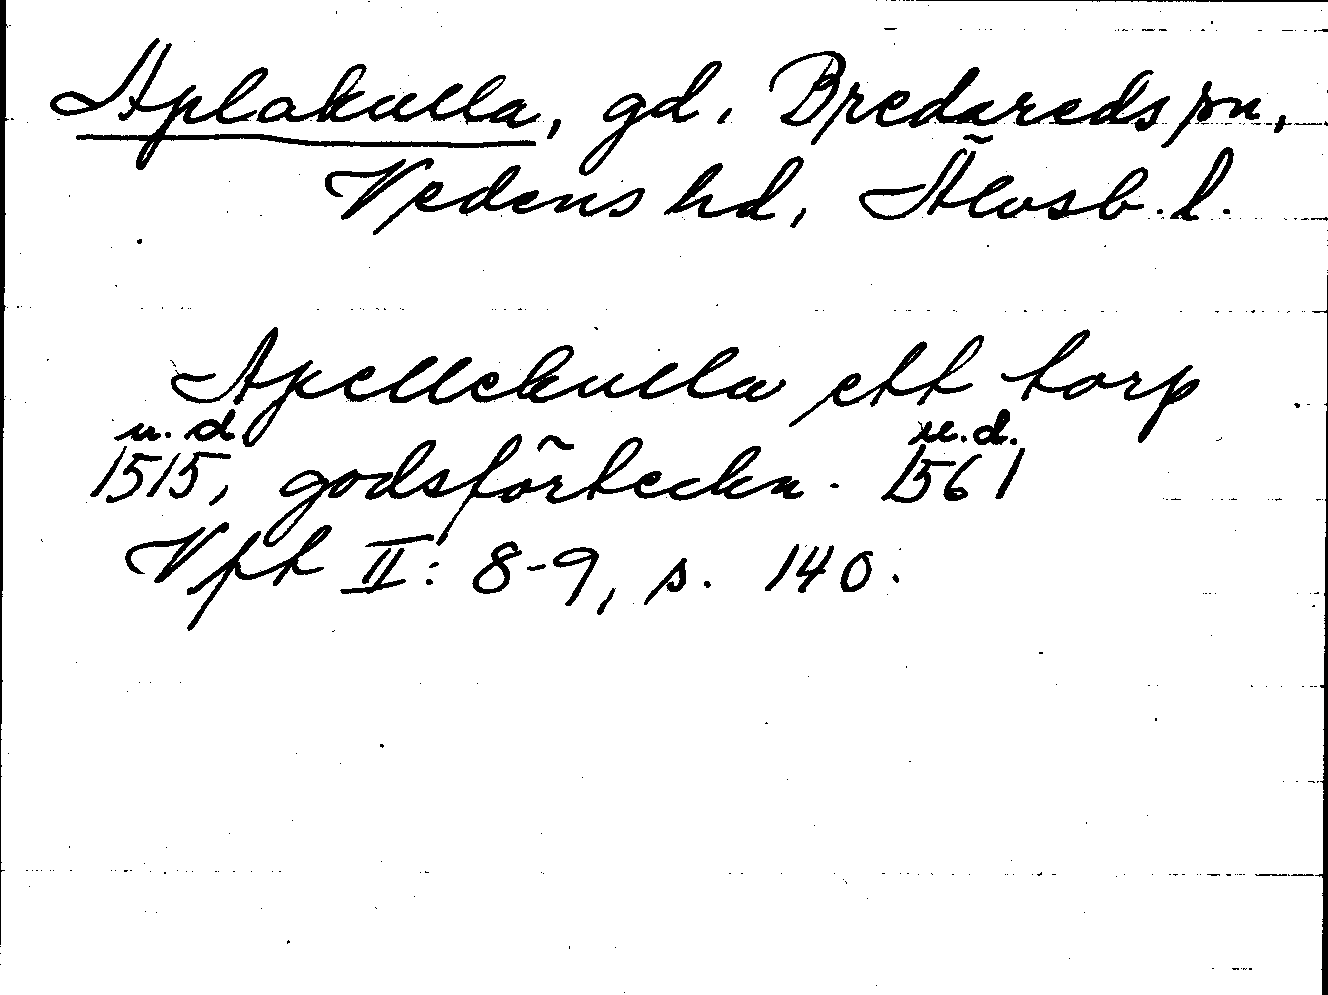 Aplakulla, gd, Bredareds sn,
Vedens hd, Älvsb. l.
Apellekulla ett torp
u. d. u. d.
1515, godsförteckn. 1561
Vft II: 8-9, s. 140.